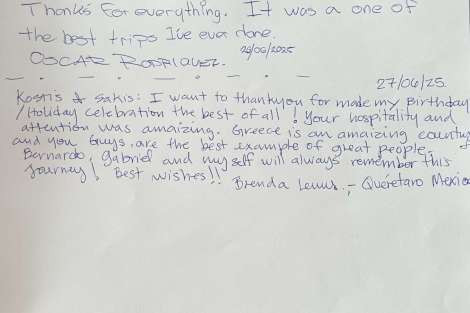 Thanks for everything. It was a one of
the best trips I've ever done.
OSCAR RODRIQUEZ. 29/06/2025
27/06/25.
Kostis & Sakis: I want to thankyou for made my Birthday
/Holiday Celebration the best of all! Your hospitality and
attention was amaizing. Greece is an amaizing country
and you Guys, are the best example of great people.
Bernardo, Gabriel and myself will always remember this
Journey! Best wishes!! Brenda .- Querétaro Mexico